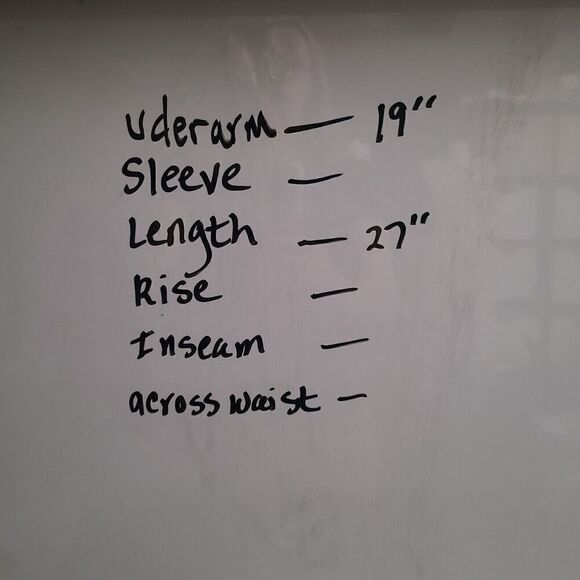 uderarm — 19"
Sleeve —
Length — 27"
Rise —
Inseam —
across waist –